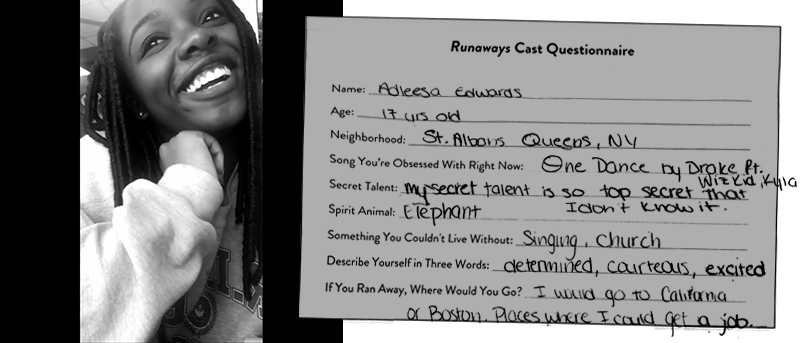 Runaways Cast Questionnaire
Name: Adleesa Edwards
Age: 17 yrs old
Neighborhood: St. Albans Queens, NY
Song You're Obsessed With Right Now: One Dance by Drake ft. Wizkid, Kyla
Secret Talent: my secret talent is so top secret that
I don't know it.
Spirit Animal: Elephant
Something You Couldn't Live Without: Singing, church
Describe Yourself in Three Words: determined, courteous, excited
If You Ran Away, Where Would You Go? I would go to California
or Boston. Places where I could get a job.